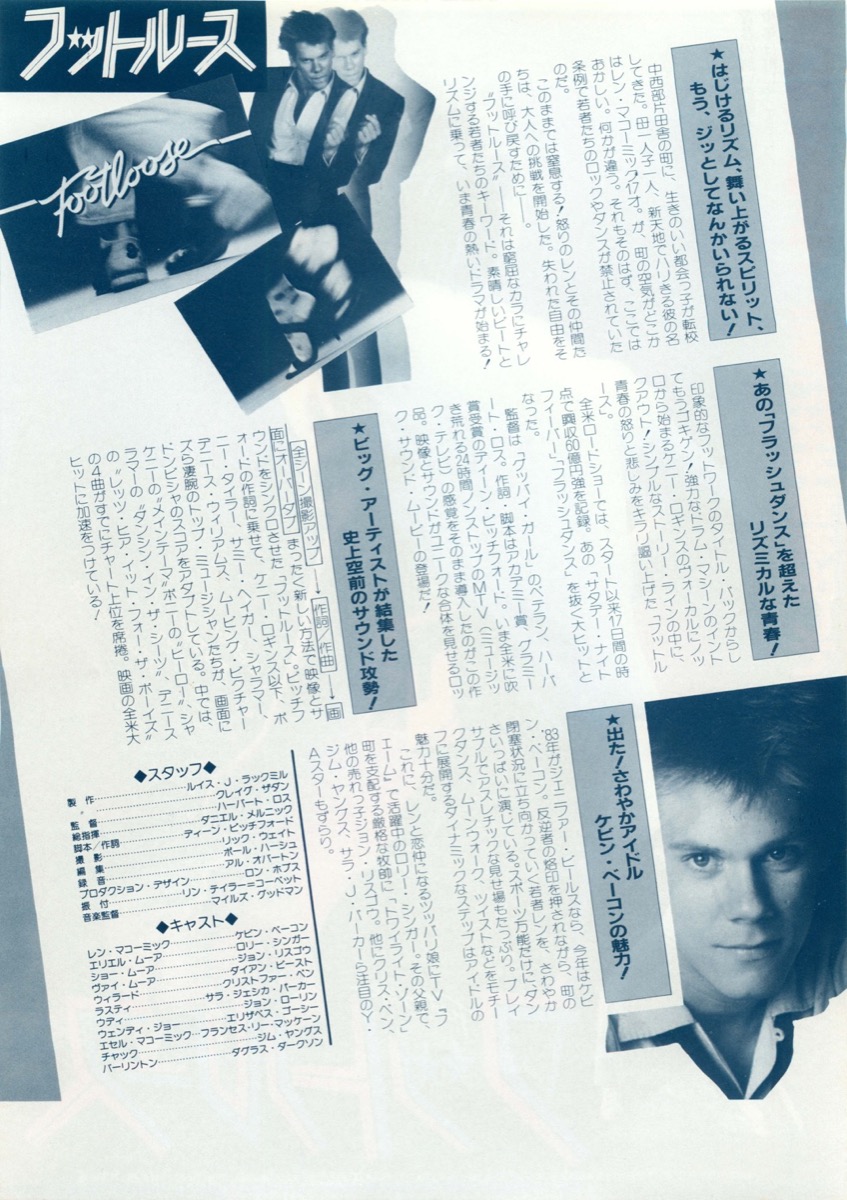 フットルース
Footloose
★はじけるリズム、舞い上がるスピリット、
もう、ジッとしてなんかいられない！
中西部片田舎の町に、生きのいい都会っ子が転校
してきた。母一人子一人、新天地でハリきる彼の名
はレン・マコーミック17才。が、町の空気がどこか
おかしい。何かが違う。それもそのはず、ここでは
条例で若者たちのロックやダンスが禁止されていた
のだ。
このままでは窒息する！怒りのレンとその仲間た
ちは、大人への挑戦を開始した。失われた自由をそ
の手に呼び戻すために――。
“フットルース”――それは窮屈なカラにチャレ
ンジする若者たちのキーワード。素晴しいビートと
リズムに乗って、いま青春の熱いドラマが始まる！
★あの「フラッシュダンス」を超えた
リズミカルな青春！
印象的なフットワークのタイトル・バックからし
てもうゴキゲン！強力なドラム・マシーンのイント
ロから始まるケニー・ロギンスのヴォーカルにノッ
クアウト！シンプルなストーリー・ラインの中に、
青春の怒りと悲しみをキラリ謳い上げた「フットル
ース」。
全米ロードショーでは、スタート以来17日間の時
点で興収60億円強を記録。あの「サタデー・ナイト
フィーバー」「フラッシュダンス」を抜く大ヒットと
なった。
監督は「グッバイ・ガール」のベテラン、ハーバ
ート・ロス。作詞・脚本はアカデミー賞、グラミー
賞受賞のディーン・ピッチフォード。いま全米に吹
き荒れる24時間ノンストップのMTV（ミュージッ
ク・テレビ）の感覚をそのまま導入したのがこの作
品。映像とサウンドがユニークな合体を見せるロッ
ク・サウンド・ムービーの登場だ！
★ビッグ・アーティストが結集した
史上空前のサウンド攻勢！
全シーン撮影アップ→作詞/作曲→画
面にオーバーダブ まったく新しい方法で映像とサ
ウンドをシンクロさせた「フットルース」。ピッチフ
ォードの作詞に乗せて、ケニー・ロギンス以下、ボ
ニー・タイラー、サミー・ヘイガー、シャラマー、
デニース・ウィリアムス、ムービング・ピクチャー
ズら凄腕のトップ・ミュージシャンたちが、画面に
ドンピシャのスコアをアダプトしている。中では、
ケニーの“メインテーマ”ボニーの“ヒーロー”、シャ
ラマーの“ダンシン・イン・ザ・シーツ”、デニース
の“レッツ・ヒア・イット・フォー・ザ・ボーイズ”
の4曲がすでにチャート上位を席捲。映画の全米大
ヒットに加速をつけている！
★出た！さわやかアイドル
ケビン・ベーコンの魅力！
'83年がジェニファー・ビールスなら、今年はケビ
ン・ベーコン。反逆者の烙印を押されながら、町の
閉塞状況に立ち向かっていく若者レンを、さわやか
さいっぱいに演じている。スポーツ万能だけに、ダン
サブルでアスレチックな見せ場もたっぷり。ブレイ
クダンス、ムーンウォーク、ツイストなどをモチー
フに展開するダイナミックなステップはアイドルの
魅力十分だ。
これに、レンと恋仲になるツッパリ娘にTV「フ
ェーム」で活躍中のロリー・シンガー。その父親で、
町を支配する厳格な牧師に「トワイライト・ゾーン」
他の売れっ子ジョン・リスゴウ。他にクリス・ペン、
ジム・ヤングス、サラ・J・パーカーら注目のY・
Aスターもずらり。
◆スタッフ◆
製作……ルイス・J・ラックミル
〃……クレイグ・ザダン
監督……ハーバート・ロス
総指揮……ダニエル・メルニック
脚本/作詞……ディーン・ピッチフォード
撮影……リック・ウェイト
編集……ポール・ハーシュ
録音……アル・オバートン
プロダクション・デザイン……ロン・ホブス
振付……リン・テイラー=コーベット
音楽監督……マイルズ・グッドマン
◆キャスト◆
レン・マコーミック……ケビン・ベーコン
エリエル・ムーア……ロリー・シンガー
ショー・ムーア……ジョン・リスゴウ
ヴァイ・ムーア……ダイアン・ビースト
ウィラード……クリストファー・ペン
ラスティ……サラ・ジェシカ・パーカー
ウディ……ジョン・ローリン
ウェンディ・ジョー……エリザベス・ゴーシー
エセル・マコーミック……フランセス・リー・マッケーン
チャック……ジム・ヤングス
バーリントン……ダグラス・ダークソン